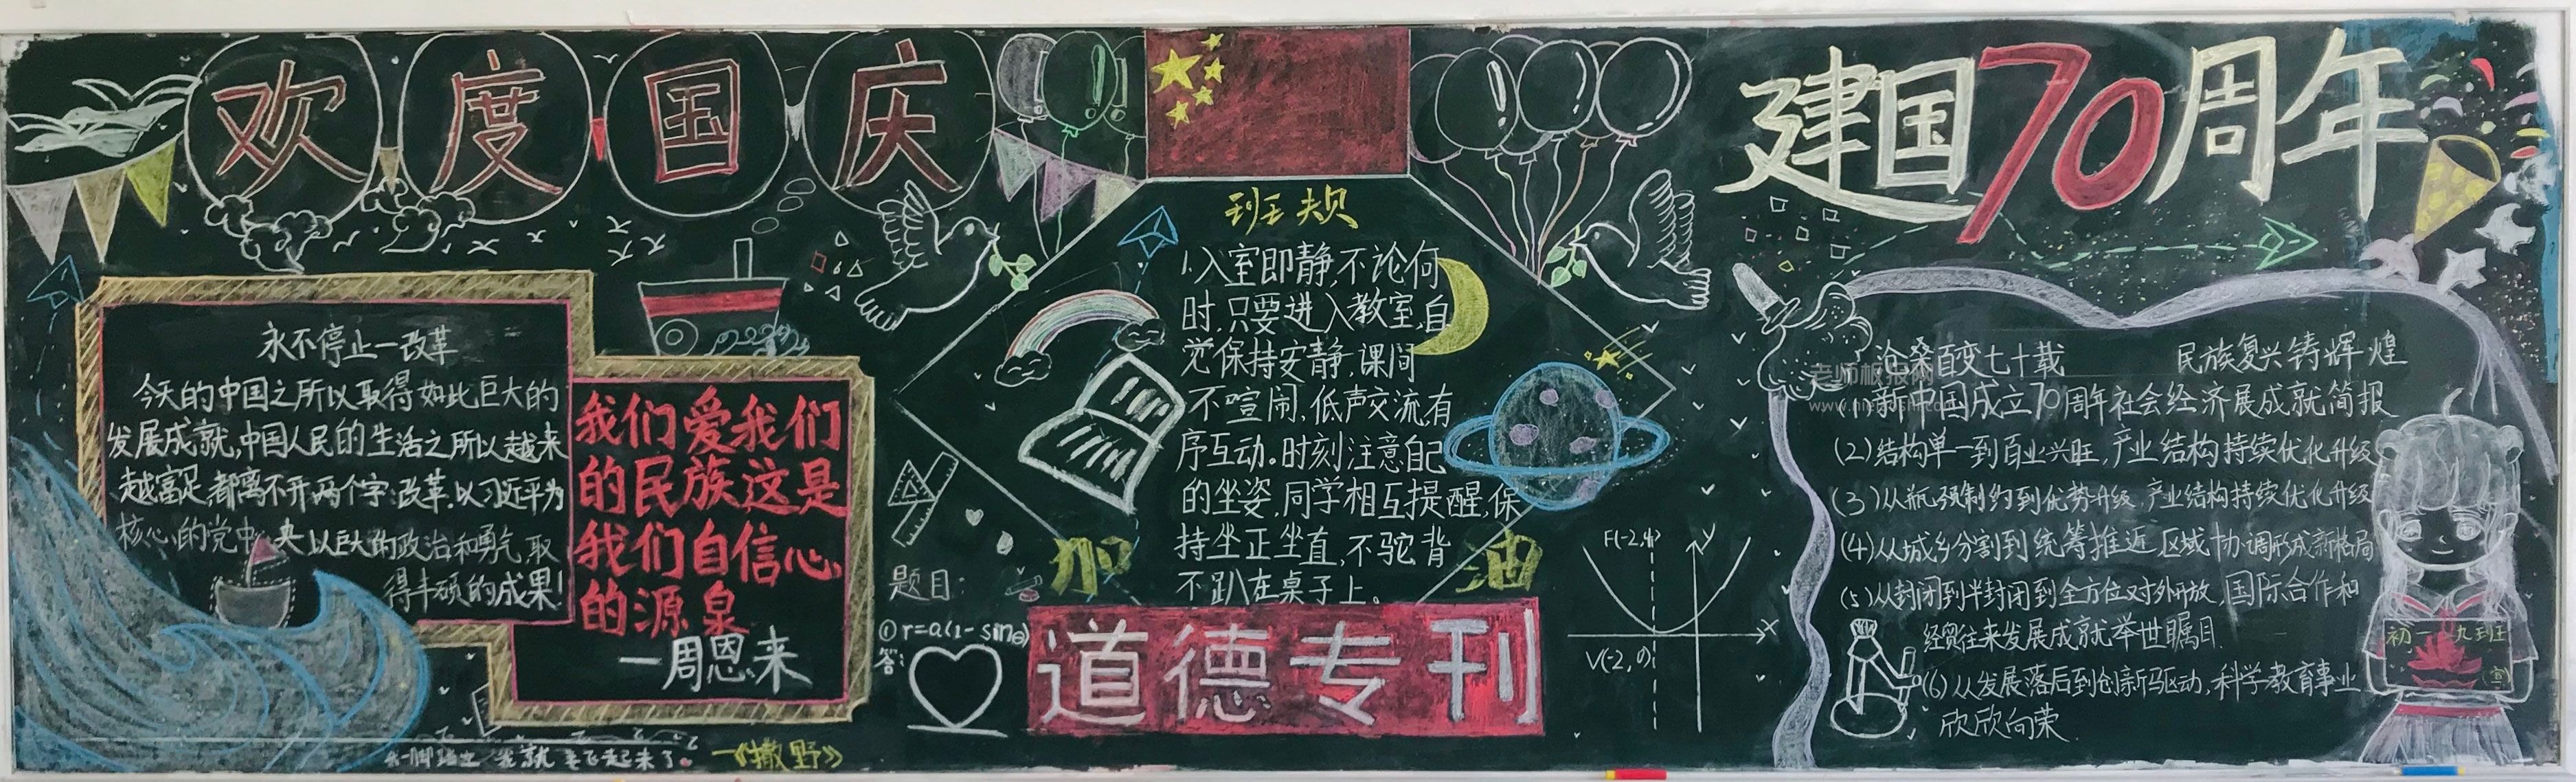 欢度国庆
永不停止一改革
今天的中国之所以取得如此巨大的
发展成就,中国人民的生活之所以越来
越富足,都离不开两个字:改革.以习近平为
核心的党中央以巨大的政治和勇气,取
得丰硕的成果!
我们爱我们
的民族这是
我们自信心
的源泉
一周恩来
就 飞起来了。 一《撒野》
班规
1.入室即静,不论何
时,只要进入教室,自
觉保持安静,课间
不喧闹,低声交流,有
序互动。时刻注意自己
的坐姿,同学相互提醒,保
持坐正坐直,不驼背
不趴在桌子上。
加油
题目:
①r=a(1-sinθ)
答:
道德专刊
y
x
V(-2,0)
建国70周年
沧桑百变七十载 民族复兴铸辉煌
老师板报网
新中国成立70周年社会经济展成就简报
(2)结构单一到百业兴旺,产业结构持续优化升级
(3)从瓶颈制约到优势升级,产业结构持续优化升级
(4)从城乡分割到统筹推近,区域协调形成新格局
(5)从封闭到半封闭到全方位对外开放,国际合作和
经贸往来发展成就举世瞩目.
(6)从发展落后到创新驱动,科学教育事业
欣欣向荣.
初一九班
宣